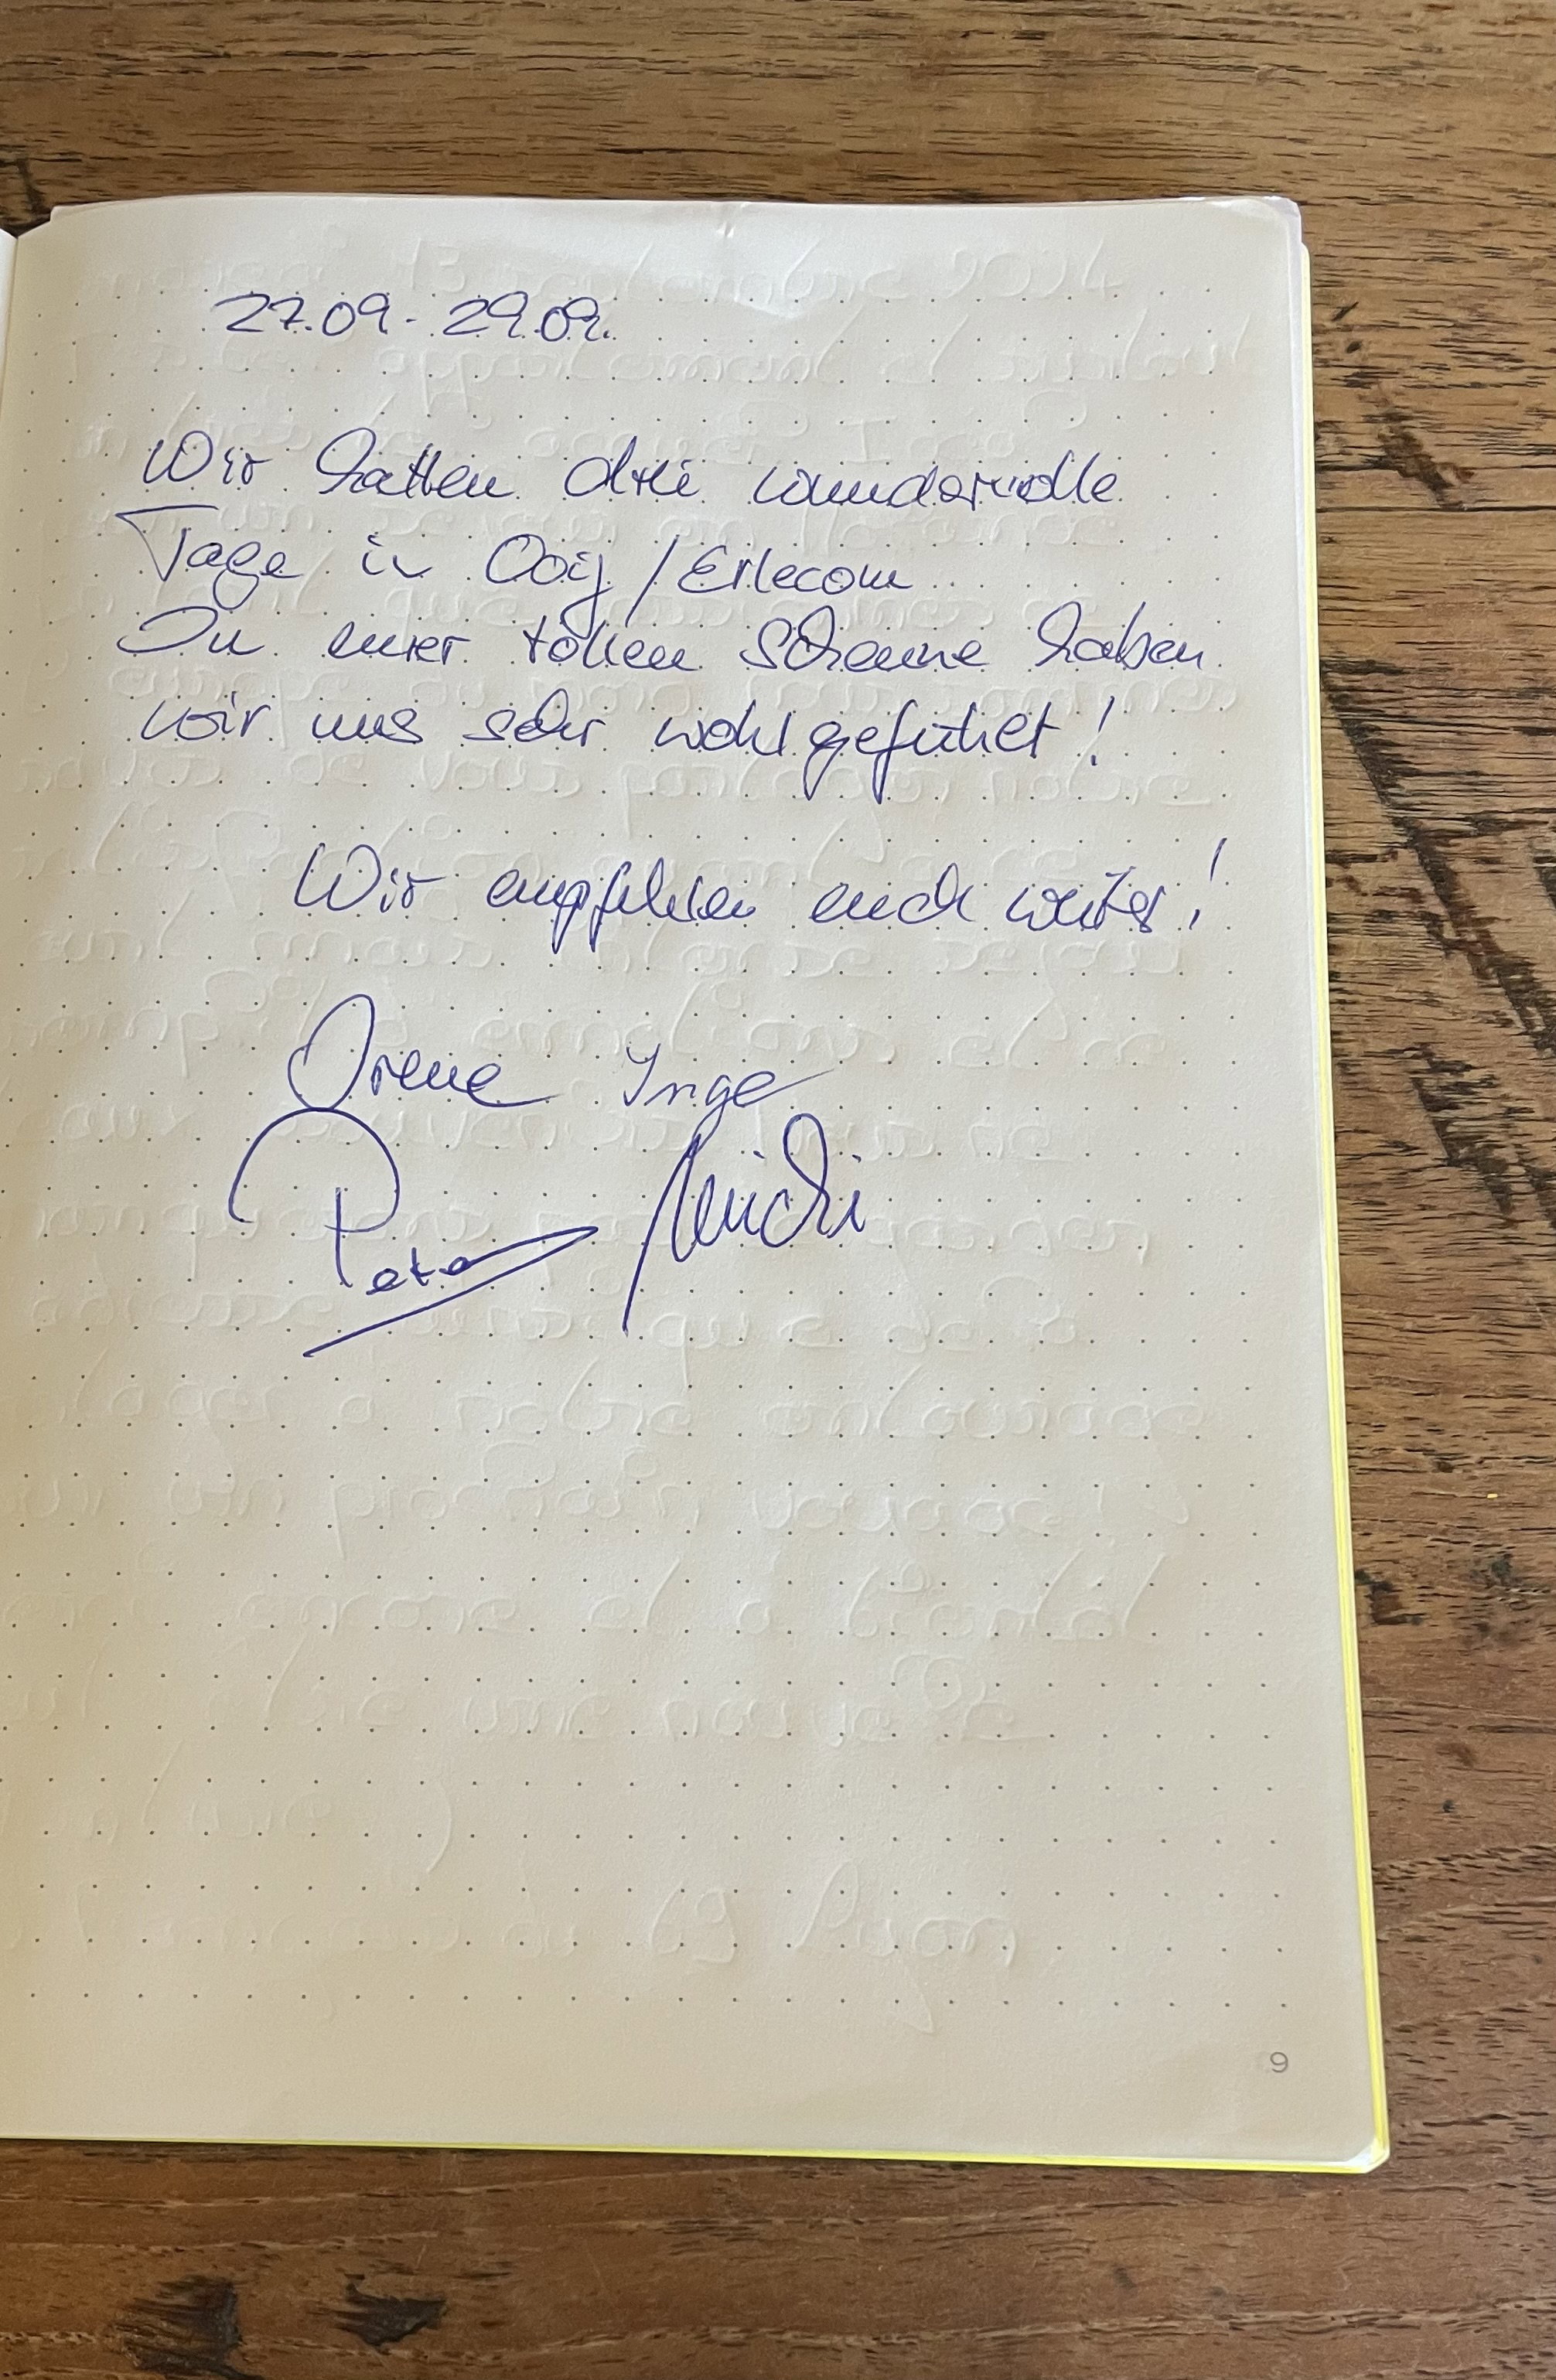 27.09. - 29.09.
Wir hatten drei wundervolle
Tage in Ooij / Erlecom
In eurer tollen Scheune haben
wir uns sehr wohlgefühlt!
Wir empfehlen euch weiter!
Irene Inge
Peter Michi
9